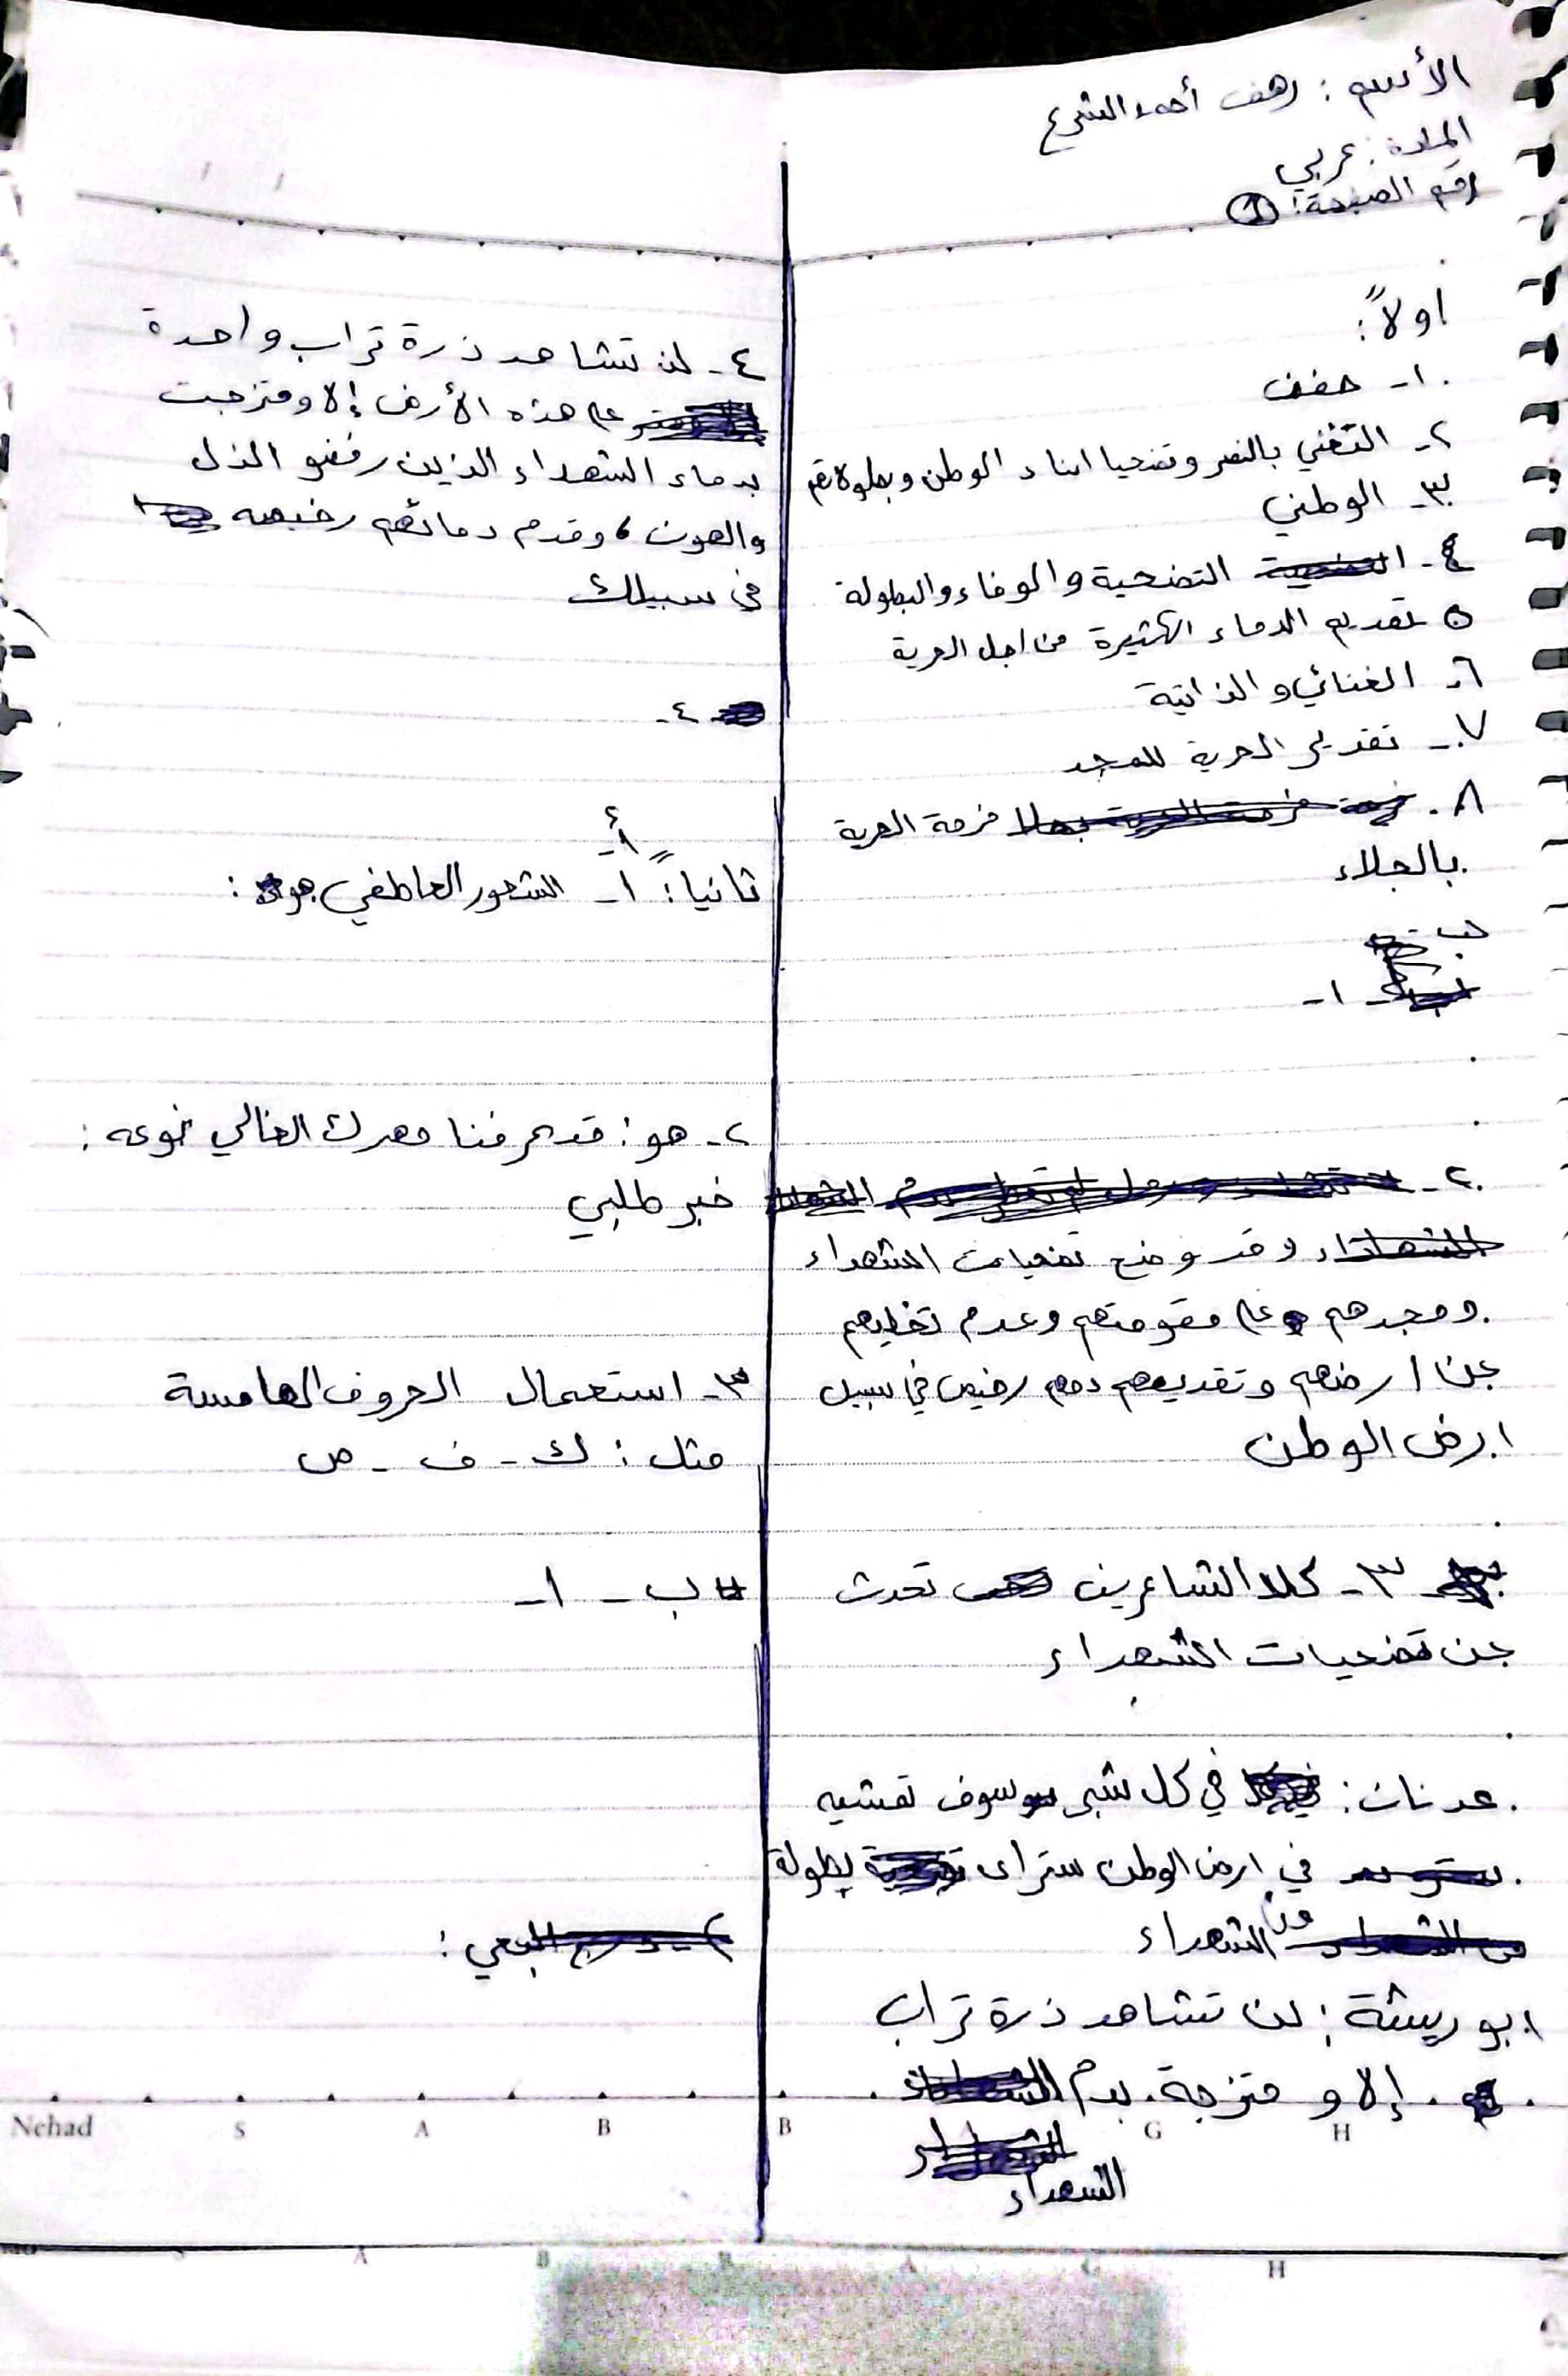 الأسم : رهف أحمد الشرع
المادة : عربي
رقم الصفحة : ①
اولاً :
١- خفف
٢- التغني بالنصر وتضحيا ابناء الوطن وبطولاتهم
٣- الوطني
٤- التضحية والوفاء والبطولة
٥ تقديم الدماء الكثيرة من اجل الحرية
٦- الغنائي و الذاتية
٧- تقديم الحرية للمجد
٨. فرحة الحرية
بالجلاء
ب
١-
٢-
وقد وضح تضحيات الشهداء
ومجدهم على مقومتهم وعدم تخليهم
عن ارضهم وتقديمهم دمهم رخيص في سبيل
ارض الوطن
٣- كلا الشاعرين تحدث
عن تضحيات الشهداء
عدنان : في كل شبر سوف تمشيه
في ارض الوطن سترى بطولة
من الشهداء
ابو ريشة : لن تشاهد ذرة تراب
إلا و متزجة بدم
الشهداء
٤- لن تشاهد ذرة تراب واحدة
على هذه الأرض إلا ومتزجت
بدماء الشهداء الذين رفضو الذل
والهون ، وقدم دمائهم رخيصه
في سبيلك
٤-
أ-
ثانياً : ١- الشعور العاطفي هو :
٢- هو : قد عرفنا مهرك الغالي نوعه :
خبر طلبي
٣- استعمال الحروف الهامسة
مثل : ك - ف - ص
ب - ١-
Nehad S A B B G H
A B B A G H